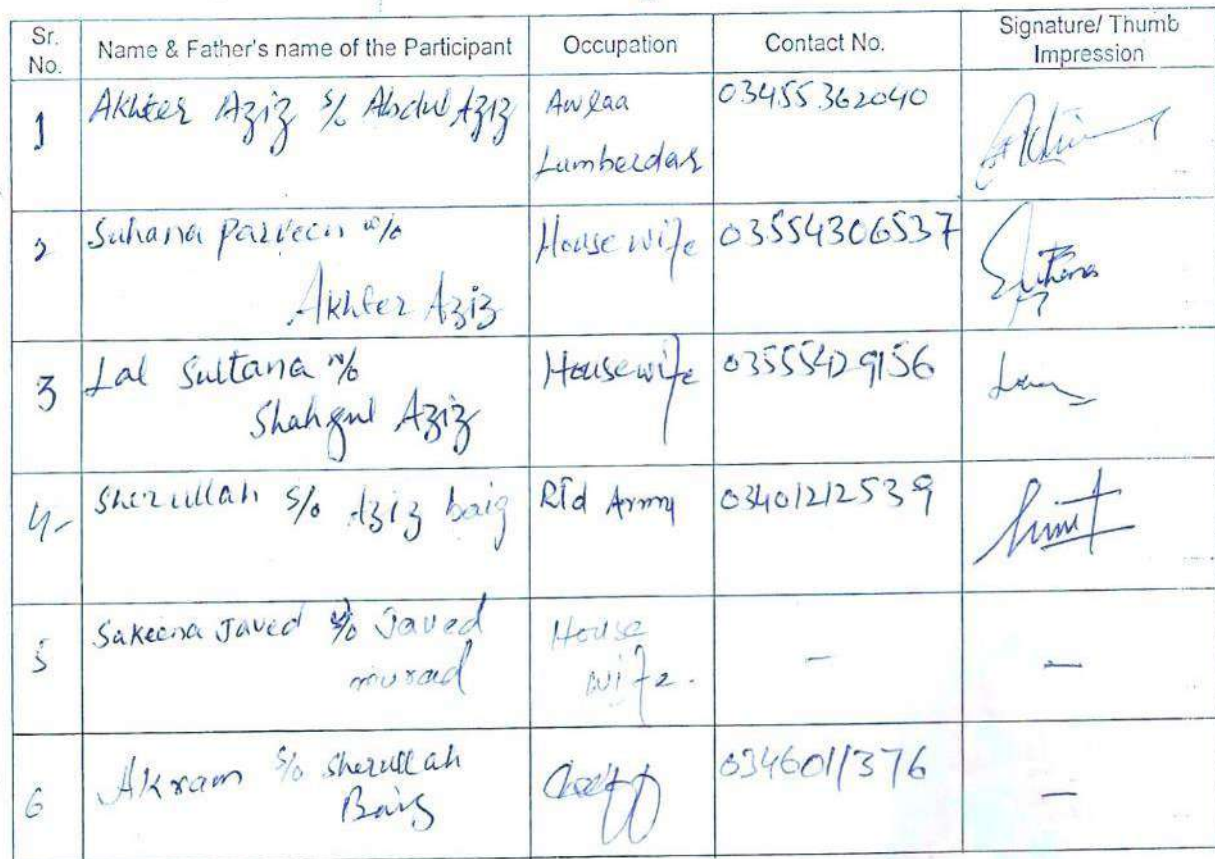 Sr. No. Name & Father's name of the Participant Occupation Contact No. Signature/ Thumb Impression
1 Akhter Aziz s/o Abdul Aziz Lumberdar 03455362040
2 Suhana Parveen w/o Akhter Aziz House wife 03554306537 Suhana
3 Lal Sultana w/o Shahgul Aziz Housewife 03555429156
4- Sherullah s/o Aziz baig RTd Army 03401212539
5 Sakeena Javed w/o Javed murad House wife. - -
6 Akram s/o Sherullah Baig 0346011376 -